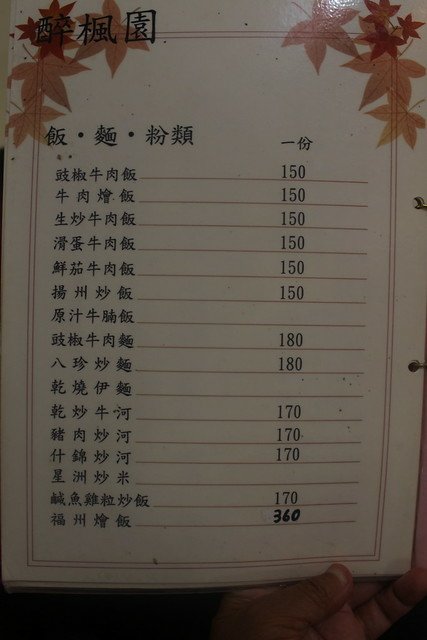 醉楓園
飯·麵·粉類 一份
豉椒牛肉飯 150
牛肉燴飯 150
生炒牛肉飯 150
滑蛋牛肉飯 150
鮮茄牛肉飯 150
揚州炒飯 150
原汁牛腩飯
豉椒牛肉麵 180
八珍炒麵 180
乾燒伊麵
乾炒牛河 170
豬肉炒河 170
什錦炒河 170
星洲炒米
鹹魚雞粒炒飯 170
福州燴飯 360